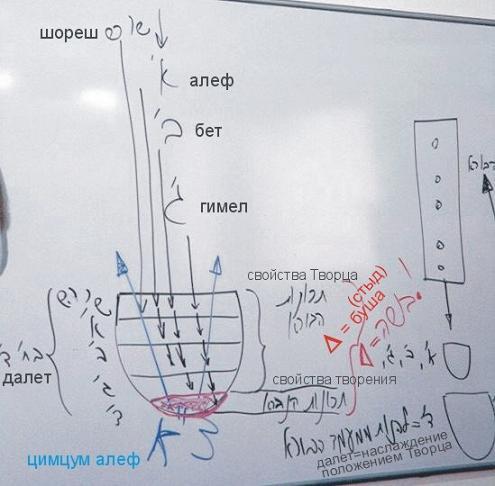 שורש
шореш
א'
алеф
ב'
бет
ג'
гимел
свойства Творца
תכונות
הבורא
שורש
א'
ב'
ג'
ד'
בחי' ד'
далет
(стыд)
Δ = буша
Δ = בושה
свойства творения
תכונות הנברא
א', ב', ג',
ד'=
далет=наслаждение
положением Творца
צ א
цимцум алеф